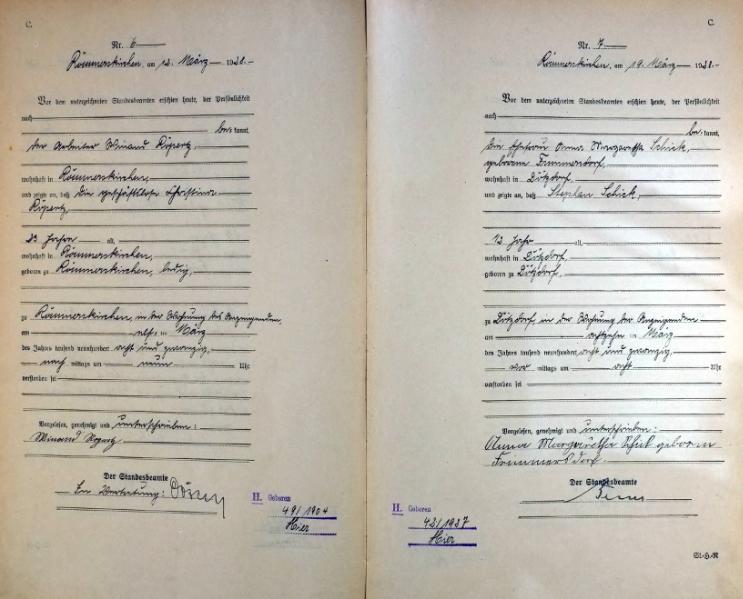 C.
Nr. 6
Rommerskirchen, am 12. März 1928.
Vor dem unterzeichneten Standesbeamten erschien heute, der Persönlichkeit
nach
be=kannt,
der Arbeiter Winand Röpertz,
wohnhaft in Rommerskirchen,
und zeigte an, daß die geschäftslose Christine
Röpertz,
23 Jahre alt,
wohnhaft in Rommerskirchen,
geboren zu Rommerskirchen, ledig,
zu Rommerskirchen, in der Wohnung des Anzeigenden,
am elf, ten März
des Jahres tausend neunhundert acht und zwanzig,
nach mittags um neun Uhr
verstorben sei
Vorgelesen, genehmigt und unterschrieben:
Winand
Der Standesbeamte
In Vertretung:
II. Geboren
49/1904
Hier
C.
Nr. 7
Rommerskirchen, am 19. März 1928.
Vor dem unterzeichneten Standesbeamten erschien heute, der Persönlichkeit
nach
be=kannt,
die Ehefrau Anna Margaretha Schick,
geborene Frimmersdorf,
wohnhaft in
und zeigte an, daß Stephan Schick,
alt,
wohnhaft in
geboren zu
zu in der Wohnung der Anzeigenden
am achtzehn ten März
des Jahres tausend neunhundert acht und zwanzig,
vor mittags um acht Uhr
verstorben sei
Vorgelesen, genehmigt und unterschrieben:
Anna Margaretha Schick geboren
Frimmersdorf
Der Standesbeamte
II. Geboren
Hier
St-H-R